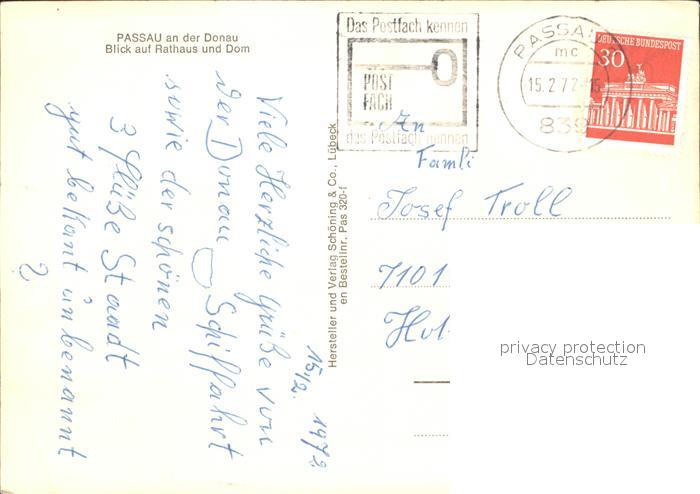 PASSAU an der Donau
Blick auf Rathaus und Dom
15/2. 1972
Viele Herzliche Grüße von
der Donau Schiffahrt
sowie der schönen
3 flüße Staadt
gut bekant u
Hersteller und Verlag Schöning & Co., Lübeck
en Bestellnr. Pas 320-f
Das Postfach kennen
POST
FACH
das Postfach nennen
PASSA
mc
15.2.72-15
839
DEUTSCHE BUNDESPOST
30
An
Famli
Josef Troll
7101
privacy protection
Datenschutz